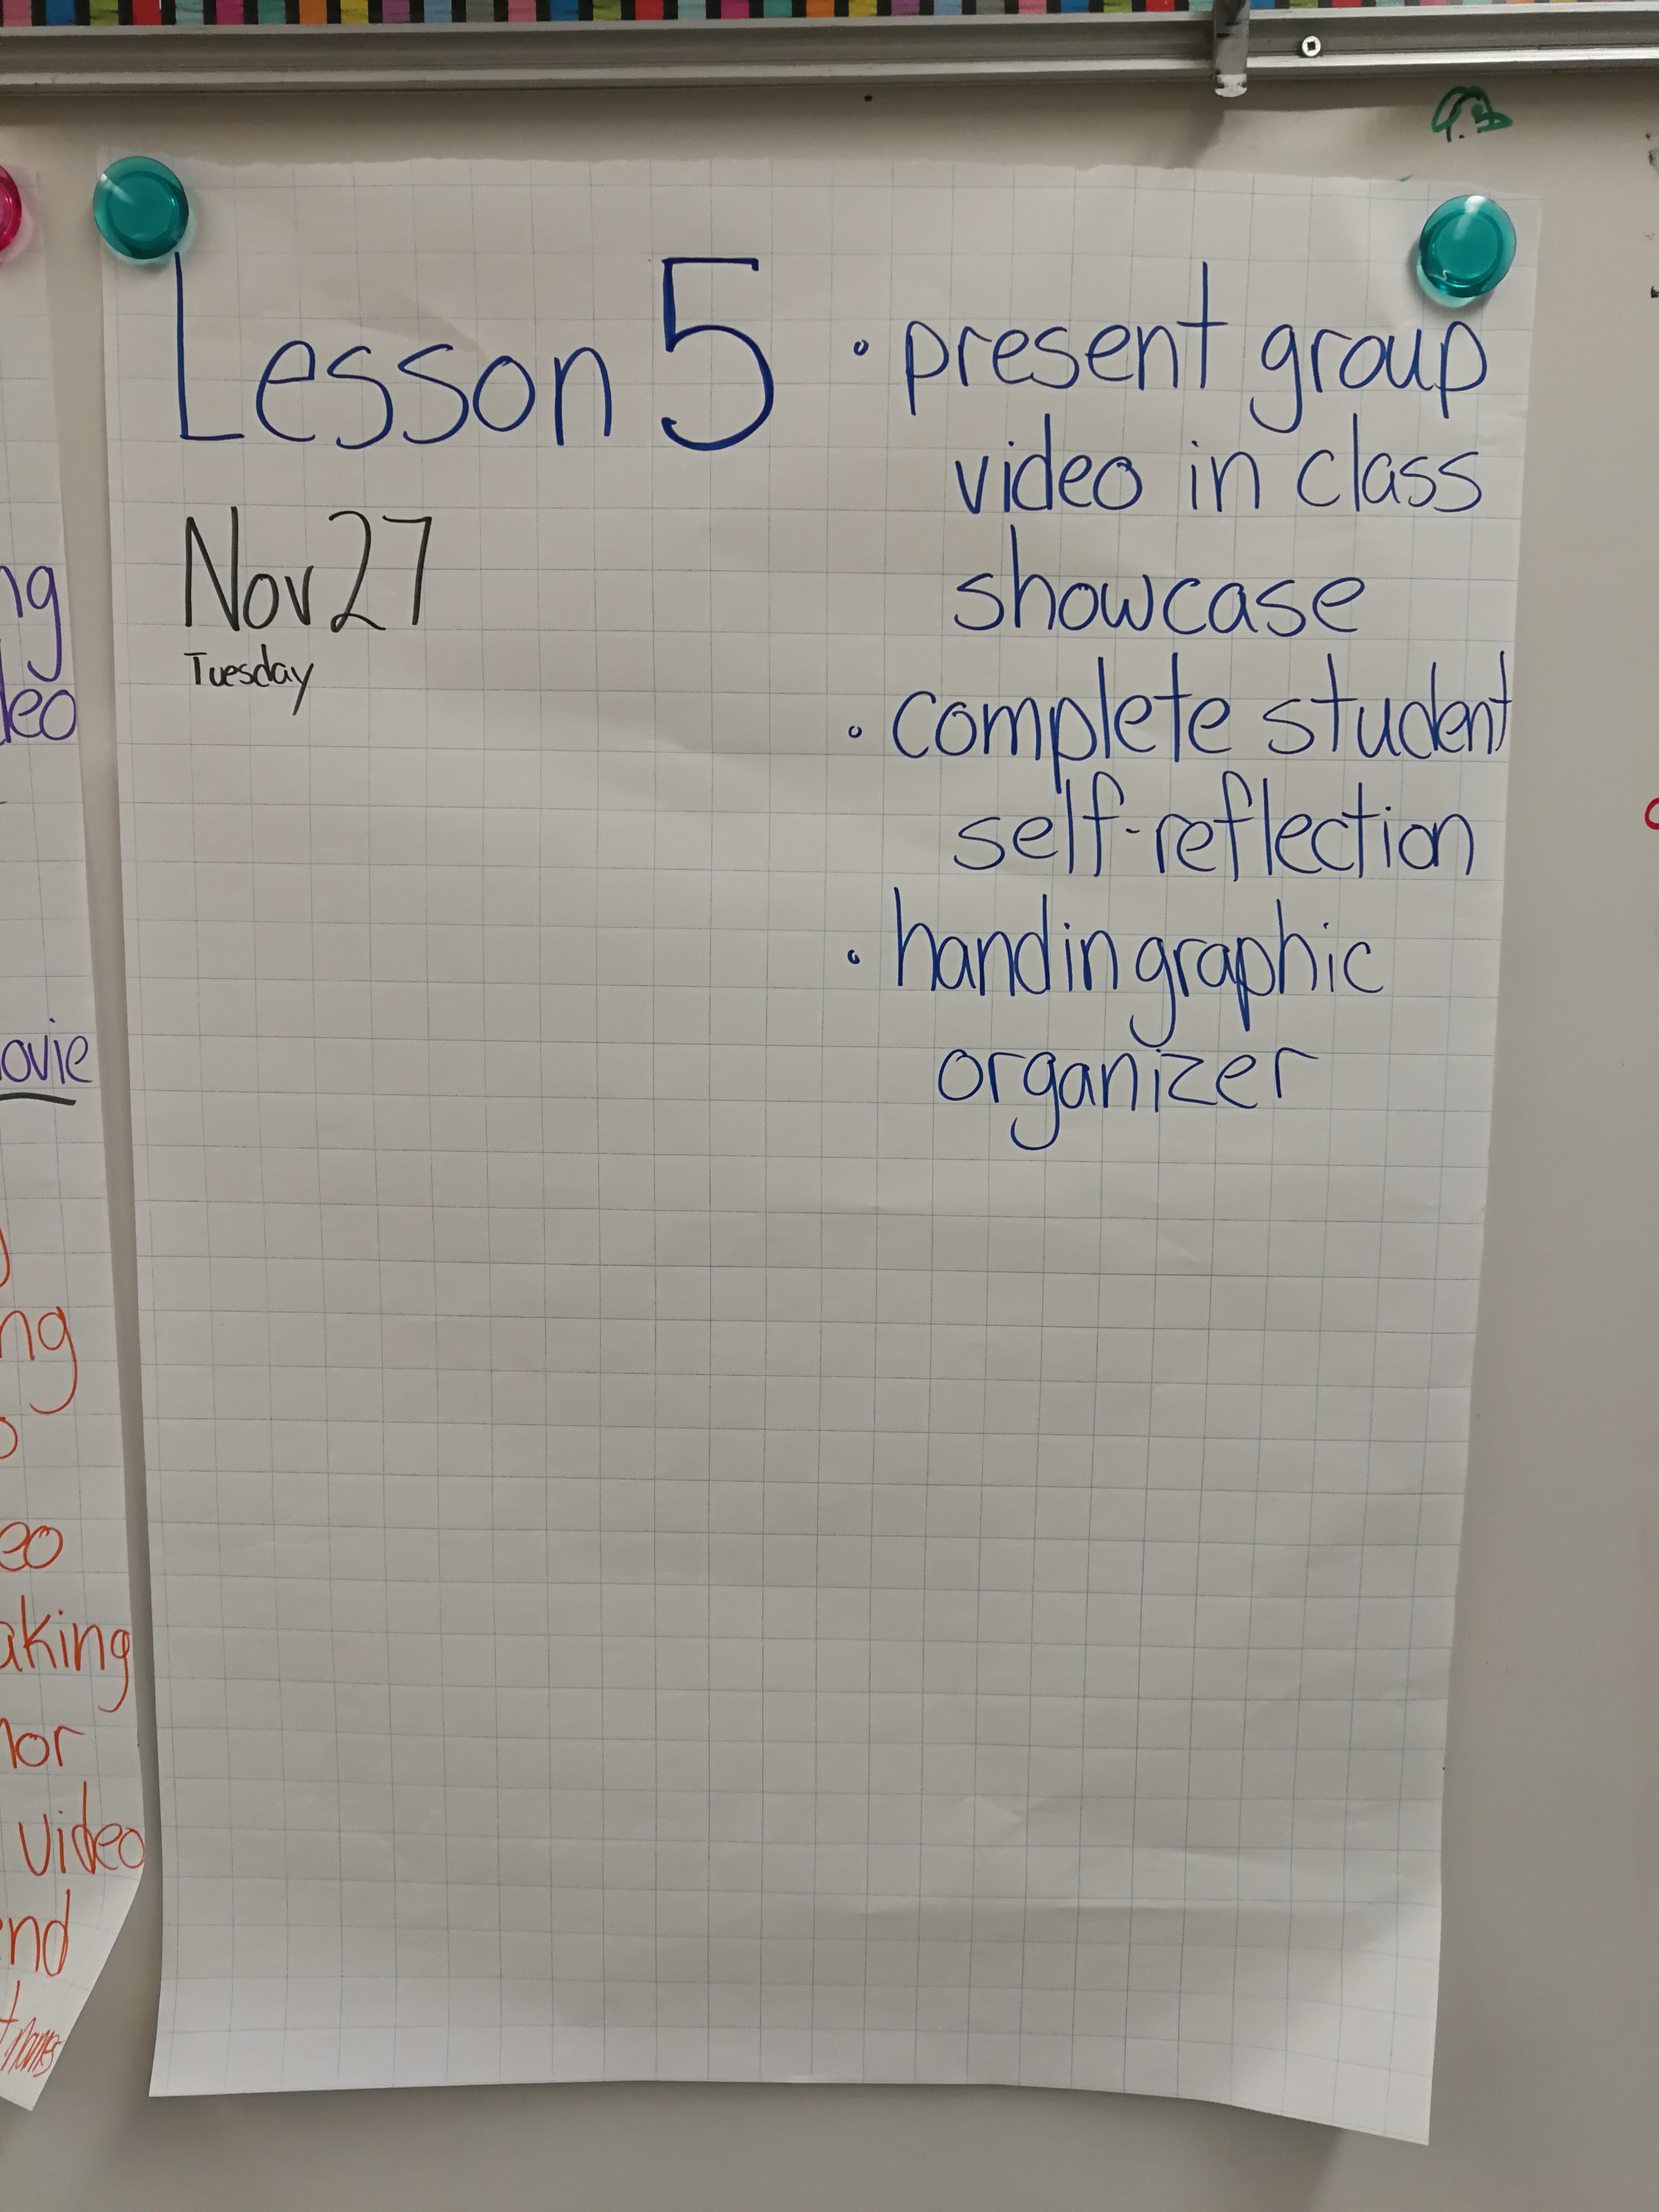 Lesson 5
Nov 27
Tuesday
• present group
video in class
showcase
• complete student
self-reflection
• hand in graphic
organizer
ng
deo
ovie
ng
eo
aking
nor
video
end